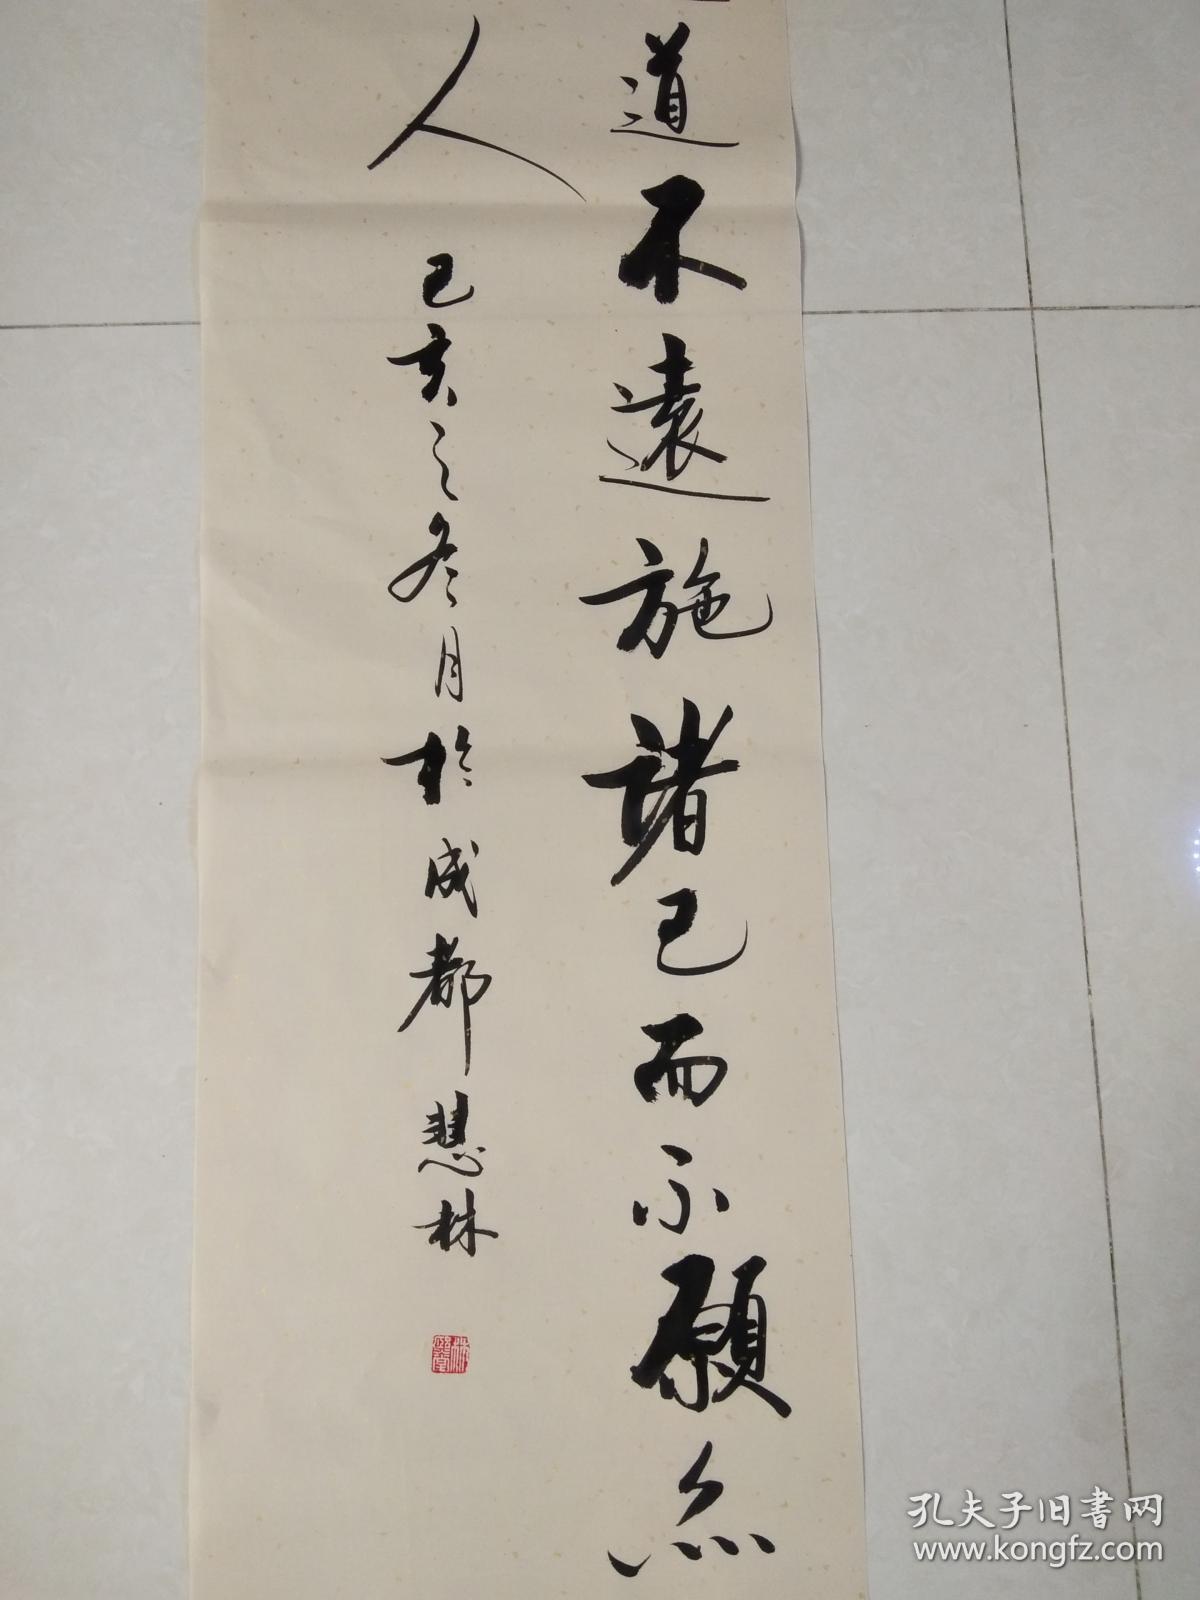 道不遠施諸己而不願亦
人
己亥之冬月於成都慧林
孔夫子旧书网
www.kongfz.com